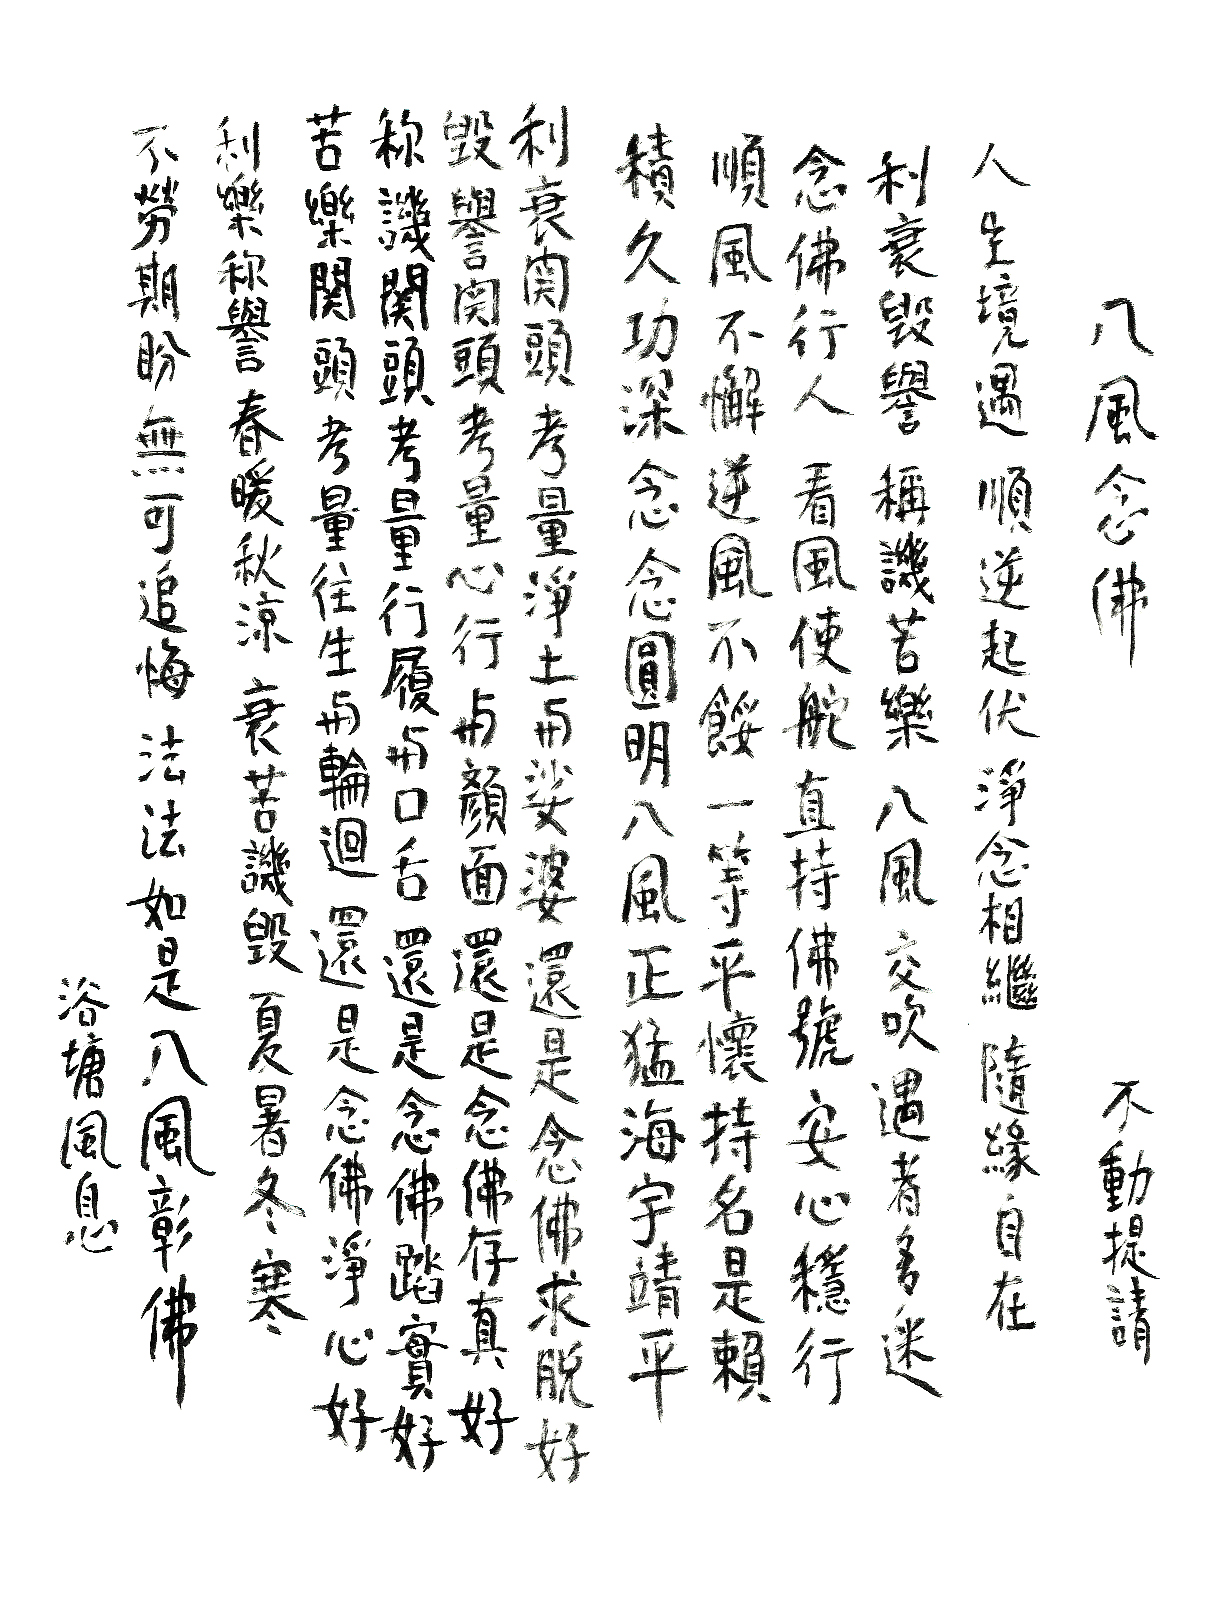 八風念佛 不動提請
人生境遇 順逆起伏 淨念相繼 隨緣自在
利衰毀譽 稱譏苦樂 八風交吹 遇者多迷
念佛行人 看風使舵 直持佛號 安心穩行
順風不懈 逆風不餒 一等平懷 持名是賴
積久功深 念念圓明 八風正猛 海宇靖平
利衰関頭 考量淨土与娑婆 還是念佛求脫好
毀譽関頭 考量心行与顏面 還是念佛存真好
称譏関頭 考量行履与口舌 還是念佛踏實好
苦樂関頭 考量往生与輪迴 還是念佛淨心好
利樂称譽 春暖秋涼 衰苦譏毀 夏暑冬寒
不勞期盼 無可追悔 法法如是 八風彰佛
浴塘風息